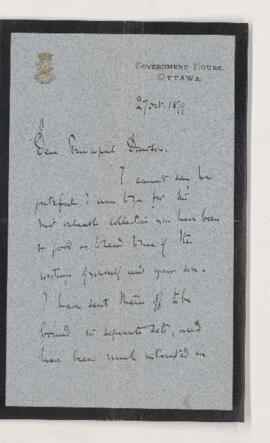 GOVERNMENT HOUSE,
OTTAWA.
27 Oct. 1879
Dear Principal Dawson.
I cannot say how
grateful I am to you for the
most valuable collection you have been
so good as to send me of the
writings of yourself and your son.
I have sent them off to be
bound in separate sets, and
have been much interested in